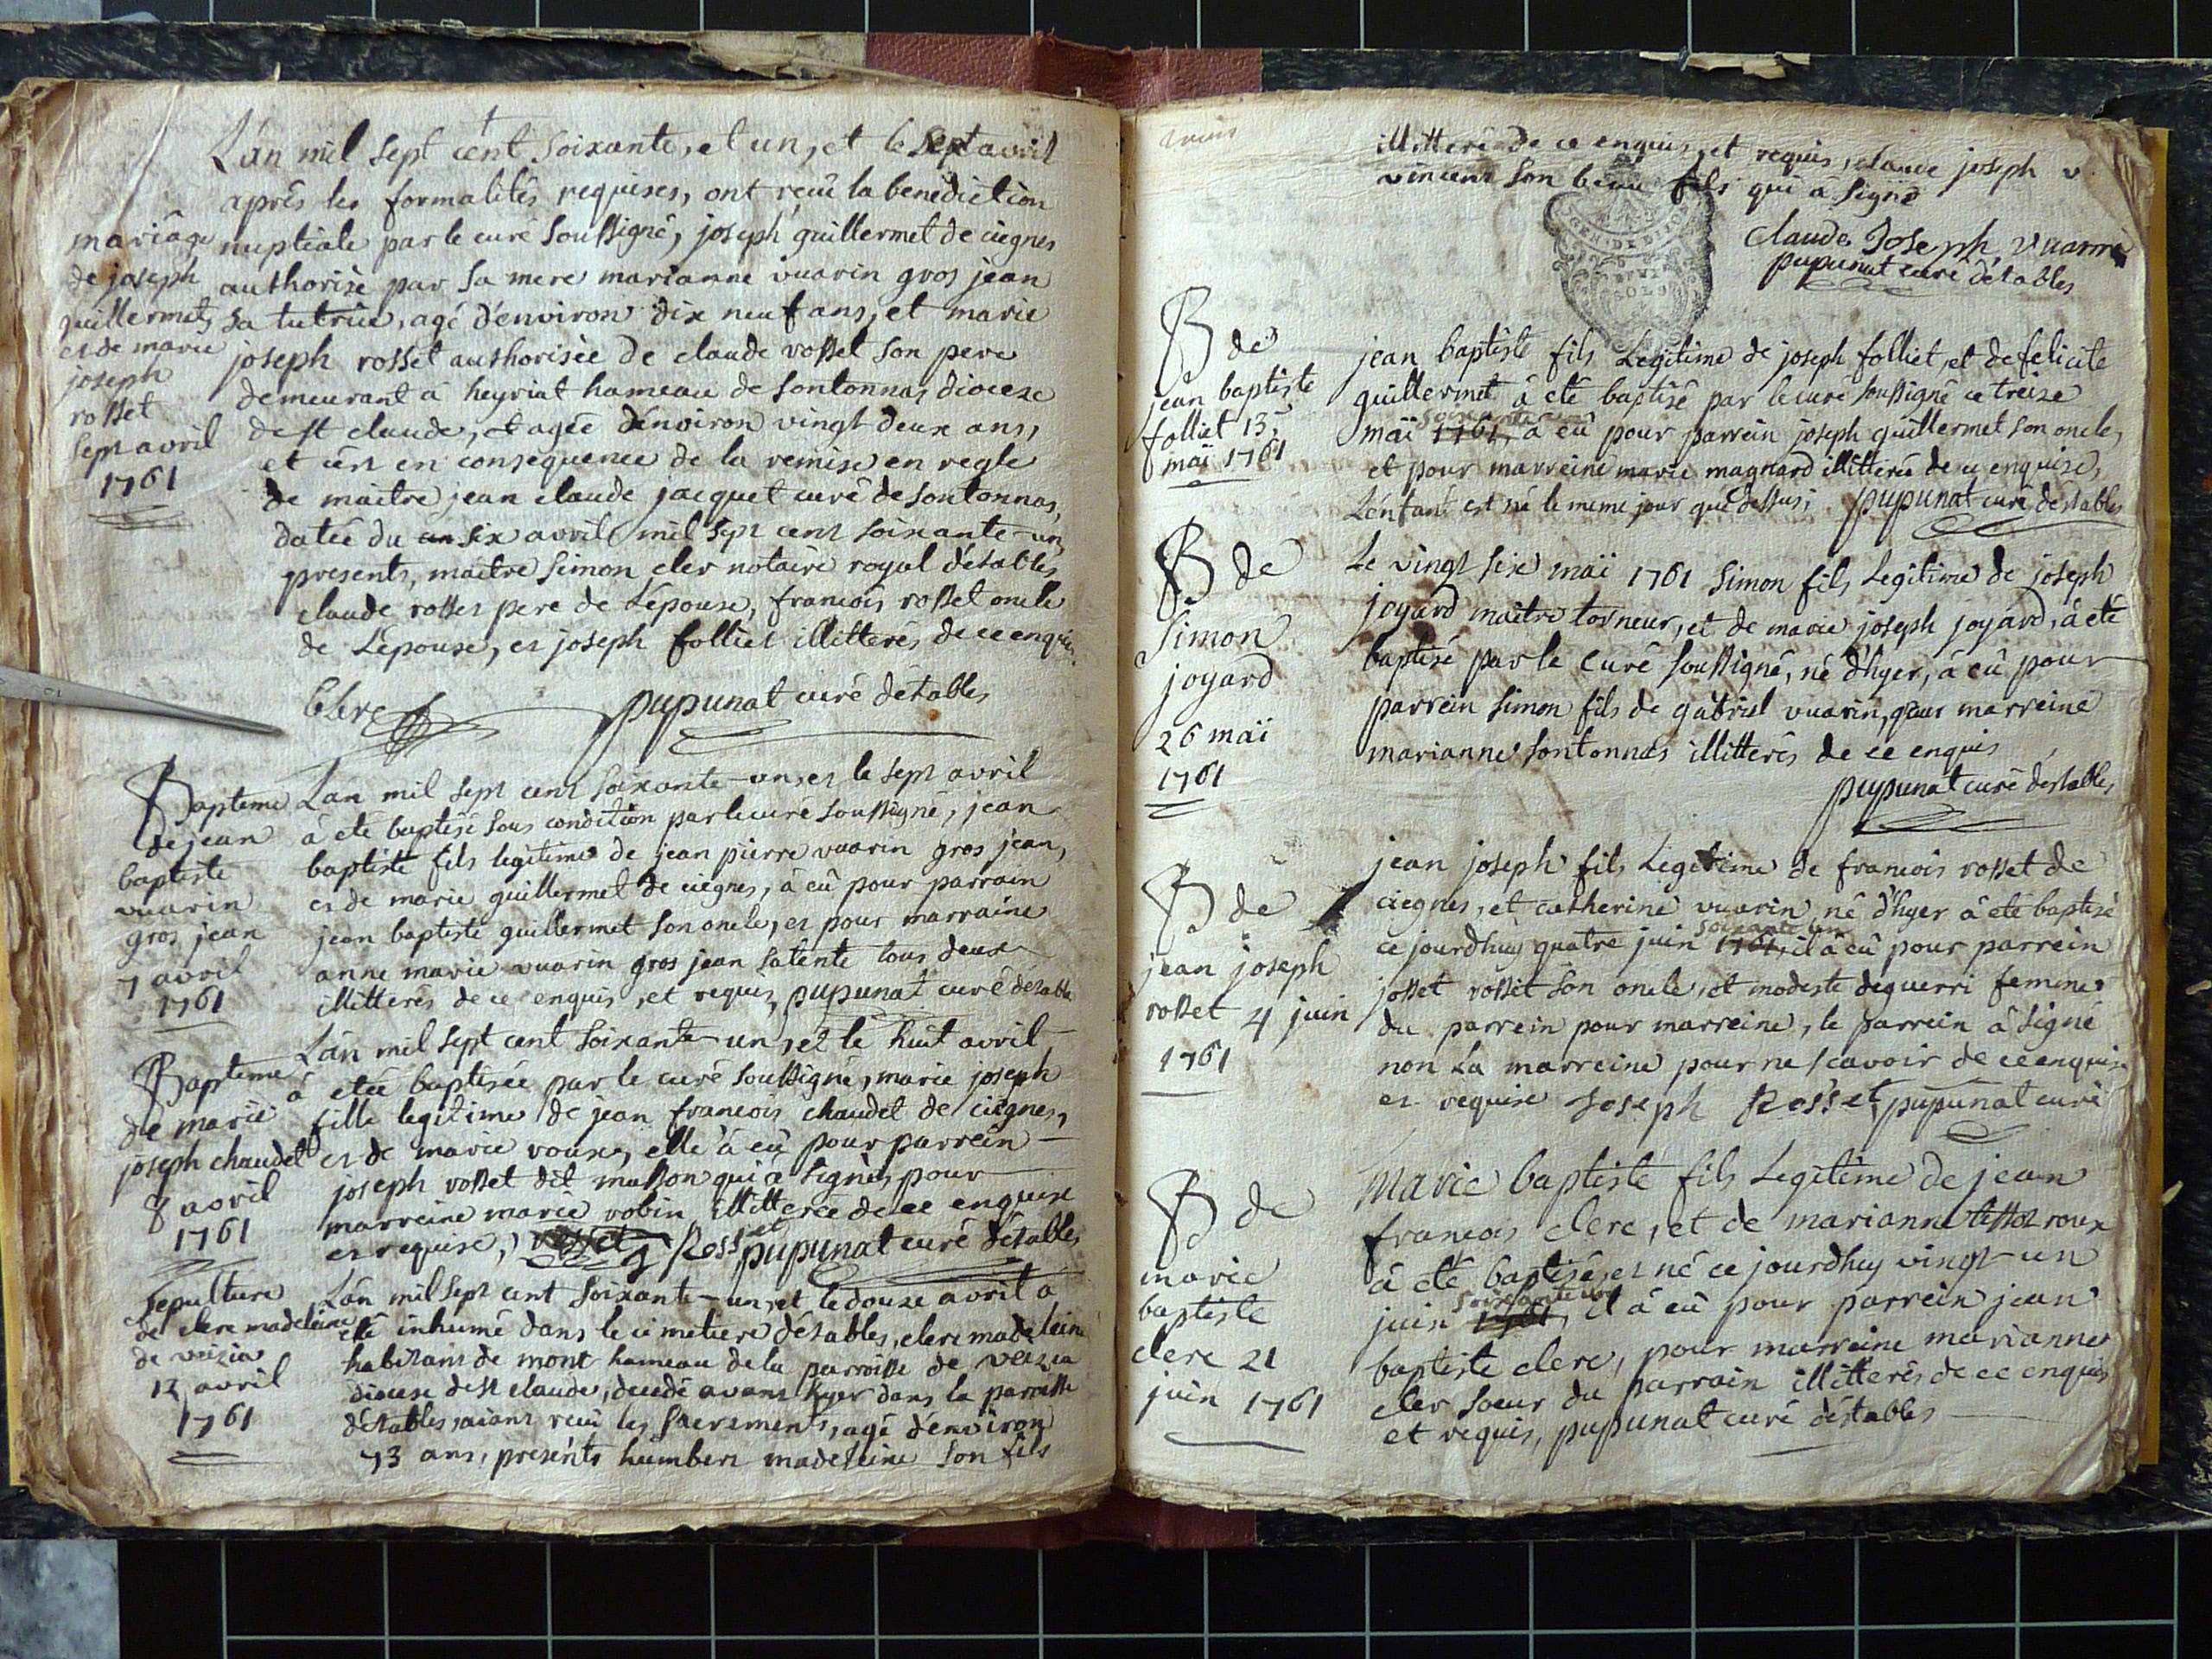 L'an mil sept cent soixante, et un, et le sept avril
après les formalités requises, ont reçu la benediction
nuptiale par le curé soussigné, joseph guillermet de ciegnes
authorisé par sa mere marianne vuarin gros jean
sa tutrice, agé d'environ dix neuf ans, et marie
joseph rosset authorisée de claude rosset son pere
demeurant à heyriat hameau de sontonnas diocese
de st claude, et agée denviron vingt deux ans,
et cest en consequence de la remise en regle
de maitre jean claude jacquet curé de sontonnas,
datée du six avril mil sept cent soixante-un,
presents, maitre simon cler notaire royal détables
claude rosset pere de Lépouse, francois rosset oncle
de Lépouse, et joseph folliet illitterés de ce enquis.
Clerc pupunat curé détables
mariage
de joseph
guillermet,
et de marie
joseph
rosset
sept avril
1761
L'an mil sept cent soixante-un, et le sept avril
à eté baptisé sous condition par le curé soussigné, jean
baptiste fils legitime de jean pierre vuarin gros jean,
et de marie guillermet de ciegnes, à eû pour parrain
jean baptiste guillermet son oncle, et pour marraine
anne marie vuarin gros jean sa tente tous deux
illitterés de ce enquis, et requis, pupunat curé détables
Bapteme
de jean
baptiste
vuarin
gros jean
7 avril
1761
L'an mil sept cent soixante-un, et le huit avril
à eteé baptisée par le curé soussigné, marie joseph
fille legitime de jean francois chaudet de ciegnes,
et de marie roux, elle à eû pour parrein
joseph rosset dit masson qui a signé, pour
marreine marie robin illitterée de ce enquise
et requise, rosset Rosset pupunat curé détables
Bapteme
de marie
joseph chaudet
8 avril
1761
L'an mil sept cent soixante-un, et le douze avril a
eté inhumé dans le cimetiere détables, clerc madeleine
habitant de mont hameau de la parroisse de veizia
diocese de st claude, decedé avant hyer dans la parroisse
détables, aiant reçu les sacrements, agé denviron
73 ans, presents humbert madeleine son fils
sepulture
de clerc madeleine
de veizia
12 avril
1761
illitteré de ce enquis, et requis, claude joseph v
vincent son beau fils qui à signé
Claude Joseph vuarin
pupunat curé détables
GEN. DE DIJON
jean baptiste fils Legitime de joseph folliet, et de felicite
guillermet à eté baptisé par le curé soussigné ce treize
maï 1761, soixante un à eû pour parrein joseph guillermet son oncle,
et pour marreine marie magnard illitterée de ce enquise,
L'enfant est né le meme jour que dessus; pupunat curé destables
B de
jean baptiste
folliet 13,
maï 1761
Le vingt six maï 1761 simon fils Legitime de joseph
joyard maitre torneur, et de marie joseph joyard, à eté
baptisé par le curé soussigné, né d'hyer, à eû pour
parrein simon fils de gabriel vuarin, pour marreine
marianne sontonnas illitterés de ce enquis
pupunat curé destables
B de
simon
joyard
26 maï
1761
jean joseph fils Legitime de francois rosset de
ciegnes, et catherine vuarin, né d'hyer à eté baptisé
ce jourdhuy quatre juin 1761, soixante un il à eû pour parrein
josset rosset son oncle, et modeste deguerri femme
du parrein pour marreine, le parrein à signé
non La marreine pour ne scavoir de ce enquise
et requise Joseph Rosset, pupunat curé
B de
jean joseph
rosset 4 juin
1761
Marie baptiste fils Legitime de jean
francois clerc, et de marianne roux
à eté baptisé, et né ce jourdhuy vingt-un
juin 1761, soixante un il à eû pour parrein jean
baptiste clerc, pour marreine marianne
cler soeur du parrain illitterés de ce enquis
et requis, pupunat curé déstables
B de
marie
baptiste
clerc 21
juin 1761